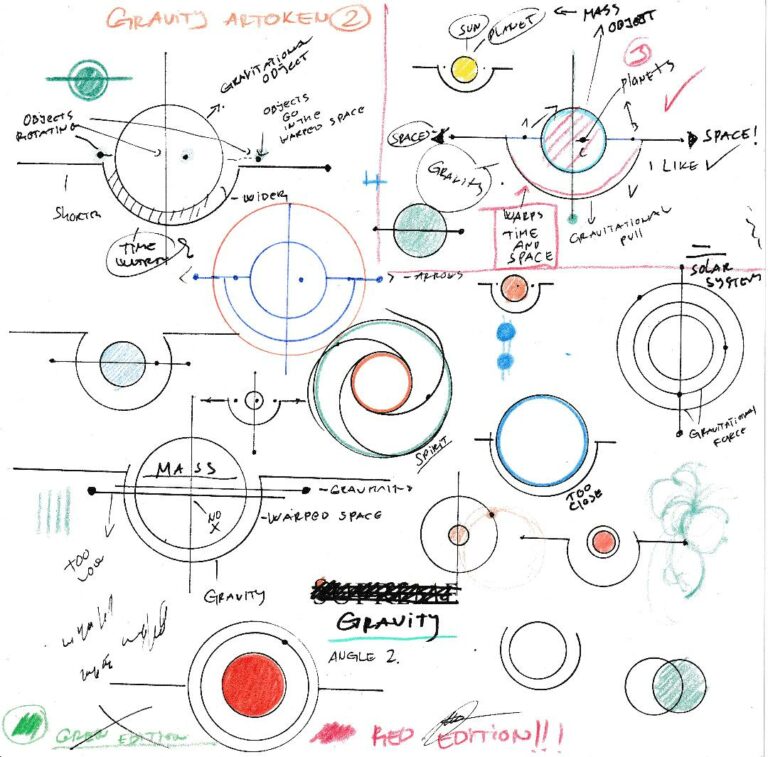 GRAVITY ARTOKEN 2
GRAVITATIONAL
OBJECT
OBJECTS
ROTATING
OBJECTS
GO
IN THE
WARPED SPACE
SHORTER
WIDER
TIME
SUN
PLANET
MASS
OBJECT
3
PLANETS
SPACE
SPACE!
GRAVITY
I LIKE
WARPS
TIME
AND
SPACE
GRAVITATIONAL
PULL
ARROWS
SOLAR
SYSTEM
GRAVITATIONAL
FORCE
SPIRIT
TOO
CLOSE
MASS
NO
X
WARPED SPACE
TOO
LOW
GRAVITY
GRAVITY
ANGLE 2.
GREEN EDITION
RED EDITION!!!